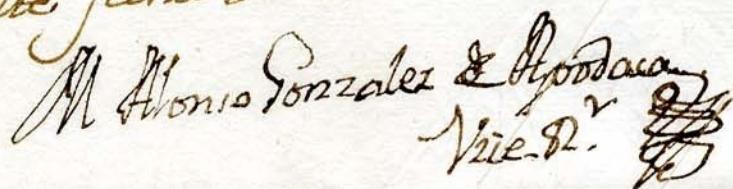 M Alonso Gonzalez de Apodaca
Vice R.r